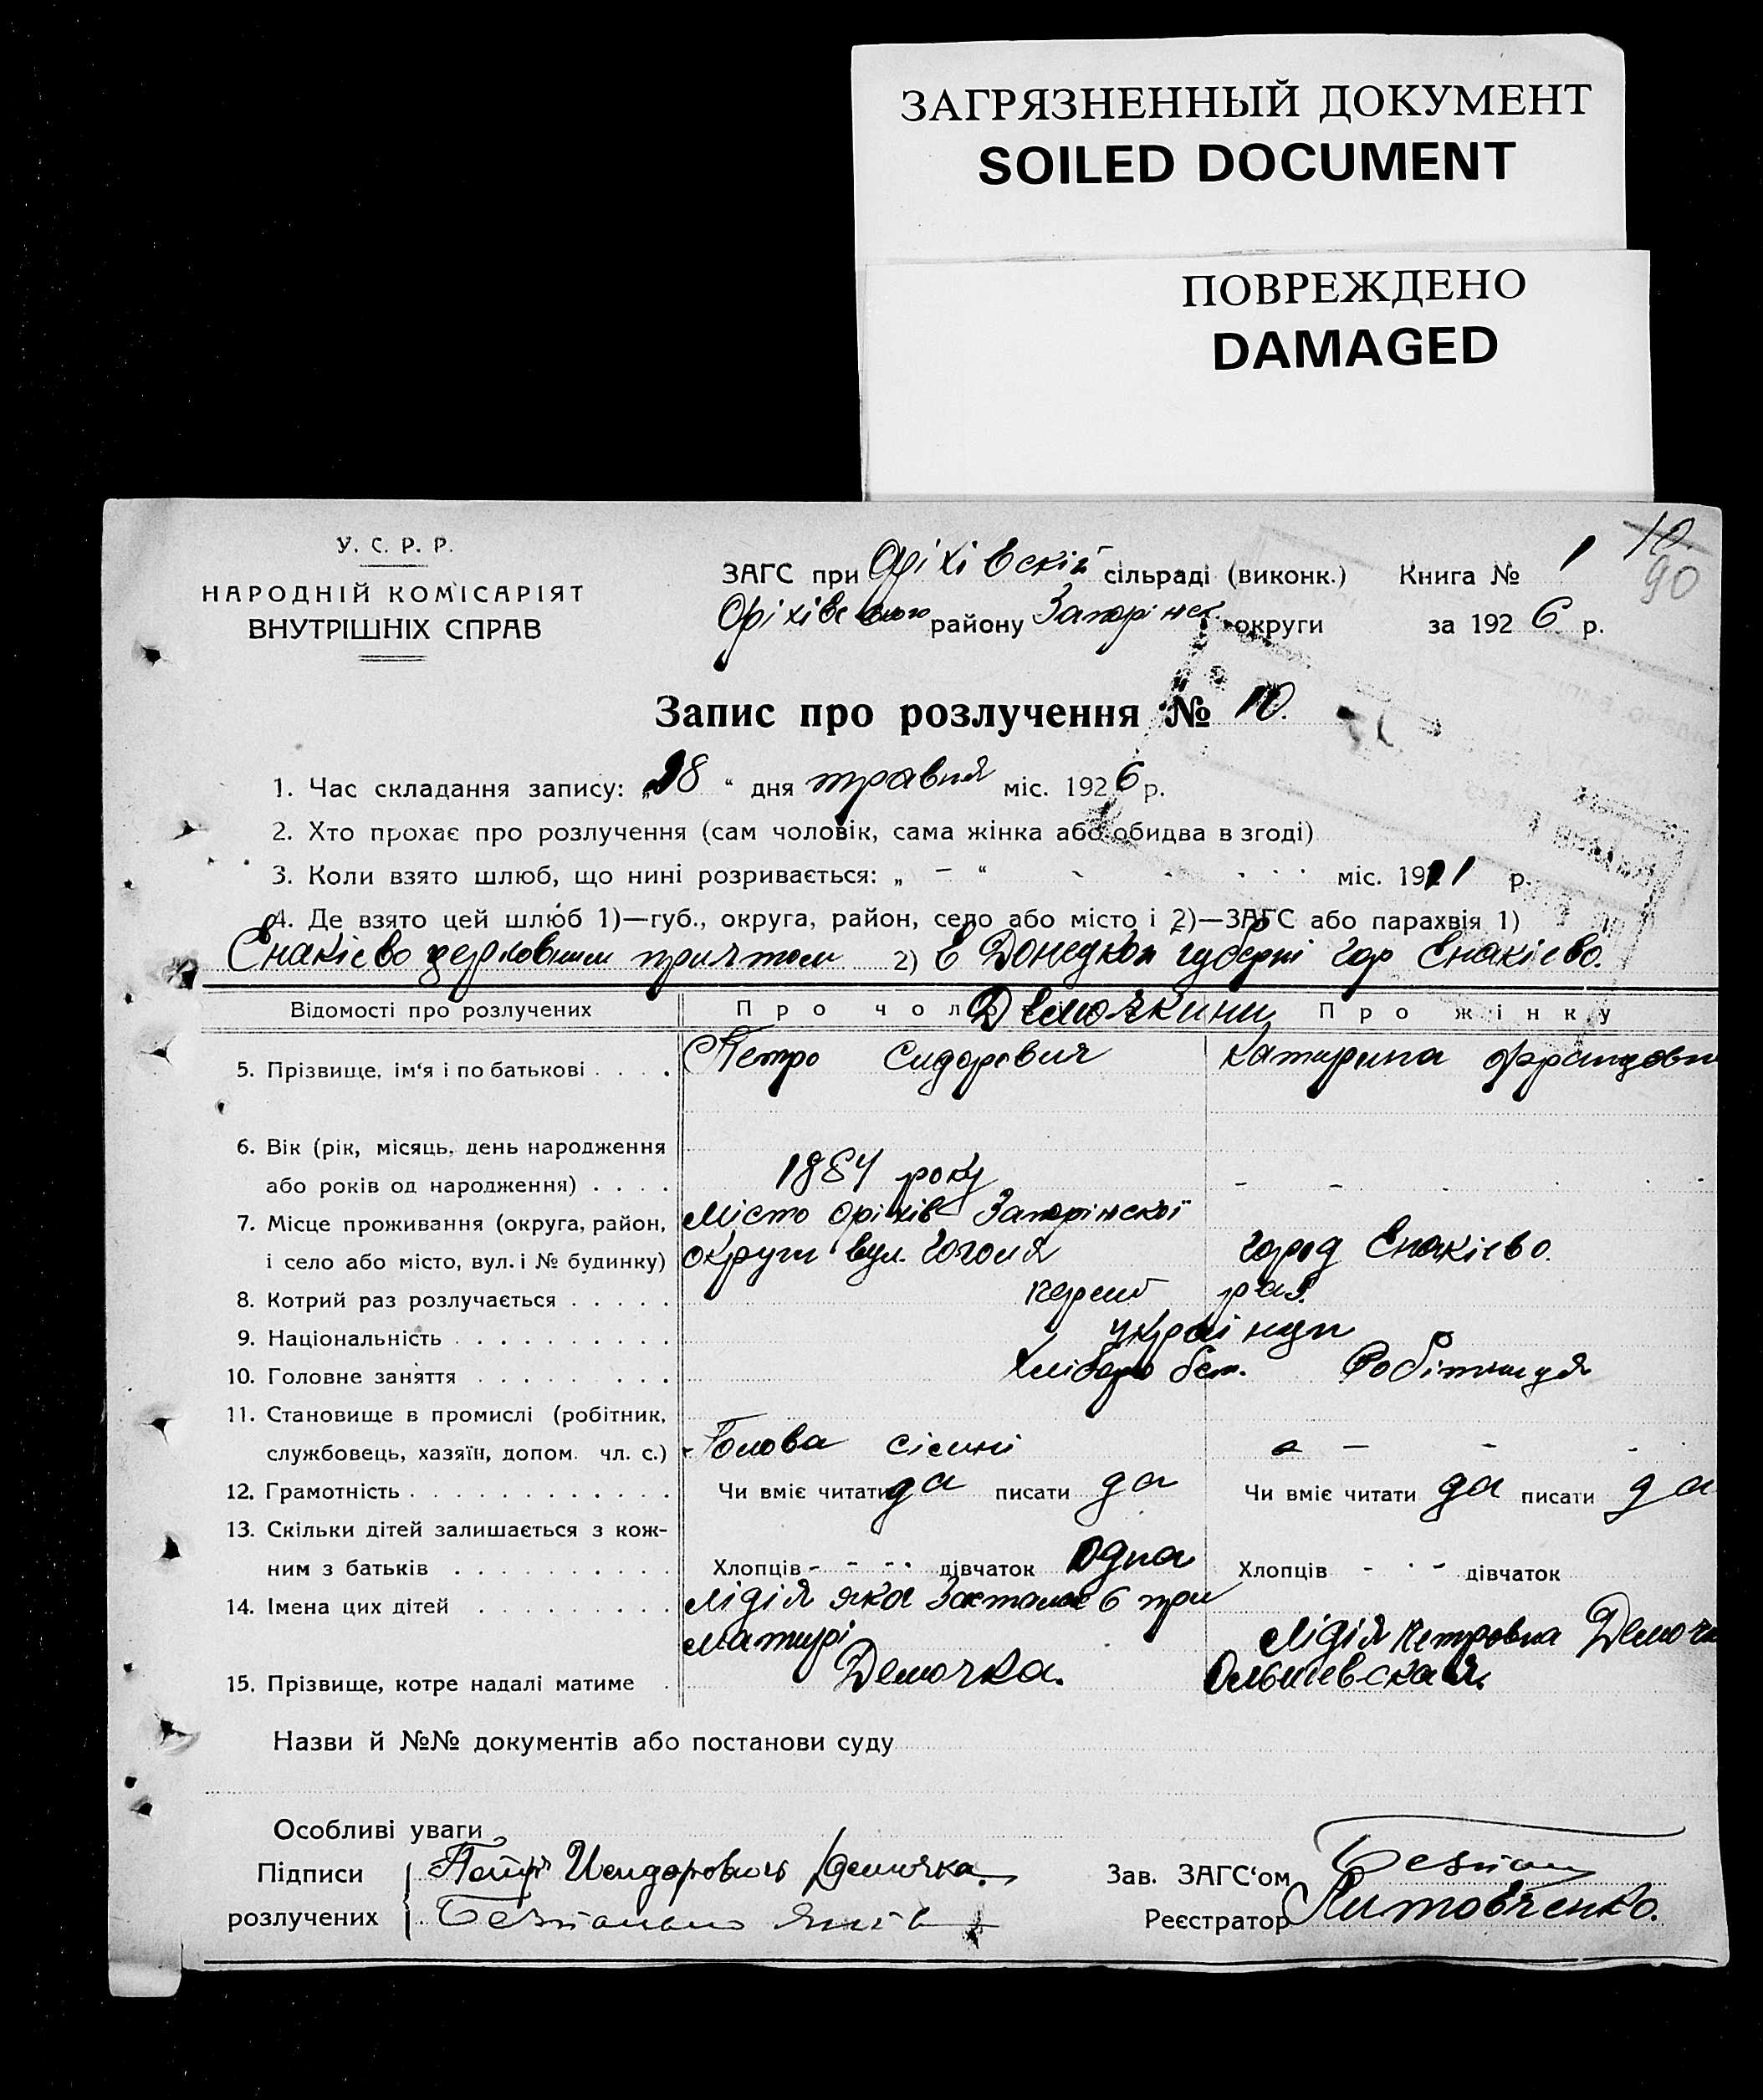 ЗАГРЯЗНЕННЫЙ ДОКУМЕНТ
SOILED DOCUMENT
ПОВРЕЖДЕНО
DAMAGED
У. С. Р. Р.
НАРОДНІЙ КОМІСАРІЯТ
ВНУТРІШНІХ СПРАВ
ЗАГС при Оріхівскій сільраді (виконк.) Книга № 1 10.
90
Оріхівського району Запоріжск. округи за 1926 р.
Запис про розлучення № 10.
1. Час складання запису: „28“ дня травня міс. 1926 р.
2. Хто прохає про розлучення (сам чоловік, сама жінка або обидва в згоді)
3. Коли взято шлюб, що нині розривається: „ – “ міс. 1911 р.
4. Де взято цей шлюб 1)—губ., округа, район, село або місто і 2)—ЗАГС або парахвія 1)
Єнакієво церковним 2) в Донецкой губерні гор Єнакієво.
Відомості про розлучених Про чол Демочкини Про жінку
5. Прізвище, ім‘я і по батькові . . . . Петро Сидорович Катерина Францовн
6. Вік (рік, місяць, день народження
або років од народження) . . . . 1884 року - -
7. Місце проживання (округа, район, Місто Оріхів Запоріжскої
і село або місто, вул. і № будинку) округи вул. Гоголя город Єнакієво.
8. Котрий раз розлучається . . . . . перший раз.
9. Національність . . . . . . . . . . українци
10. Головне заняття . . . . . . . . Хлібороб Робітниця
11. Становище в промислі (робітник,
службовець, хазяїн, допом. чл. с.) Голова сімні - -
12. Грамотність . . . . . . . . . . . . Чи вміє читати да писати да Чи вміє читати да писати да
13. Скільки дітей залишається з кож-
ним з батьків . . . . . . . . . . Хлопців - - - дівчаток Одна Хлопців - - дівчаток
14. Імена цих дітей . . . . . . . . . Лідія яка при
матирі Лідія Петровна Демочк
15. Прізвище, котре надалі матиме . Демочка. Ольшевская.
Назви й №№ документів або постанови суду
Особливі уваги
Підписи Петр Исидорович Демочка. Зав. ЗАГС‘ом
розлучених Реєстратор Литовченко.